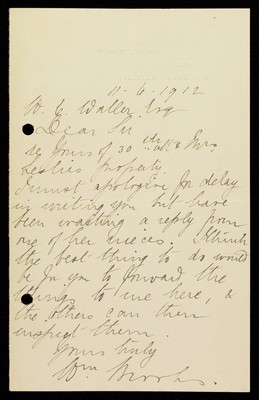 11-6-1912
W. E. Waller Esq
Dear Sir
re Yours of 30th ult & Mrs
Leslies property
I must apologise for delay
in writing you but have
been waiting a reply from
one of her nieces. I think
the best thing to do would
be for you to forward the
things to me here, &
the others can then
inspect them.
Yours truly
Wm Brooks.